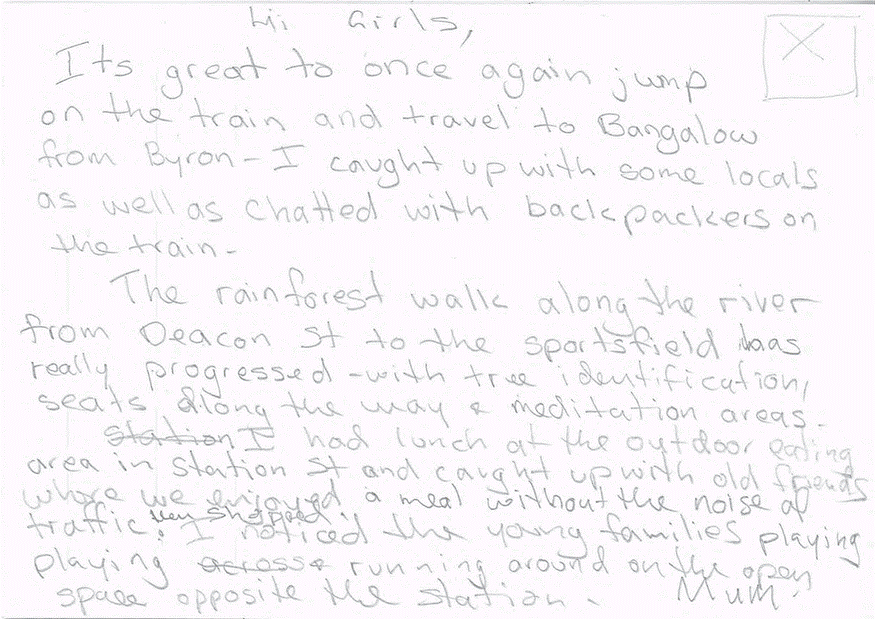 Hi Girls,
Its great to once again jump
on the train and travel to Bangalow
from Byron - I caught up with some locals
as well as chatted with backpackers on
the train -
The rainforest walk along the river
from Deacon St to the sportsfield has
really progressed - with tree identification,
seats along the way & meditation areas.
station I had lunch at the outdoor eating
area in Station St and caught up with old friends
where we enjoyed a meal without the noise of
traffic, then shopped. I noticed the young families playing
playing across running around on the open
space opposite the station.
Mum.